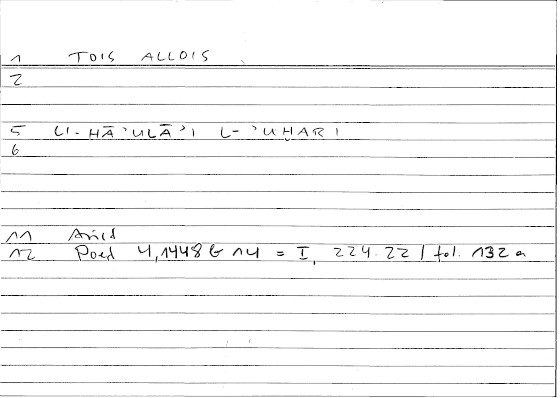 1 TOIS ALLOIS
2
5 LI-HĀ'ULĀ'I L-'UḪARI
6
11 Arist
12 Poet 4,1448 b 14 = I, 224.22 / fol. 132 a